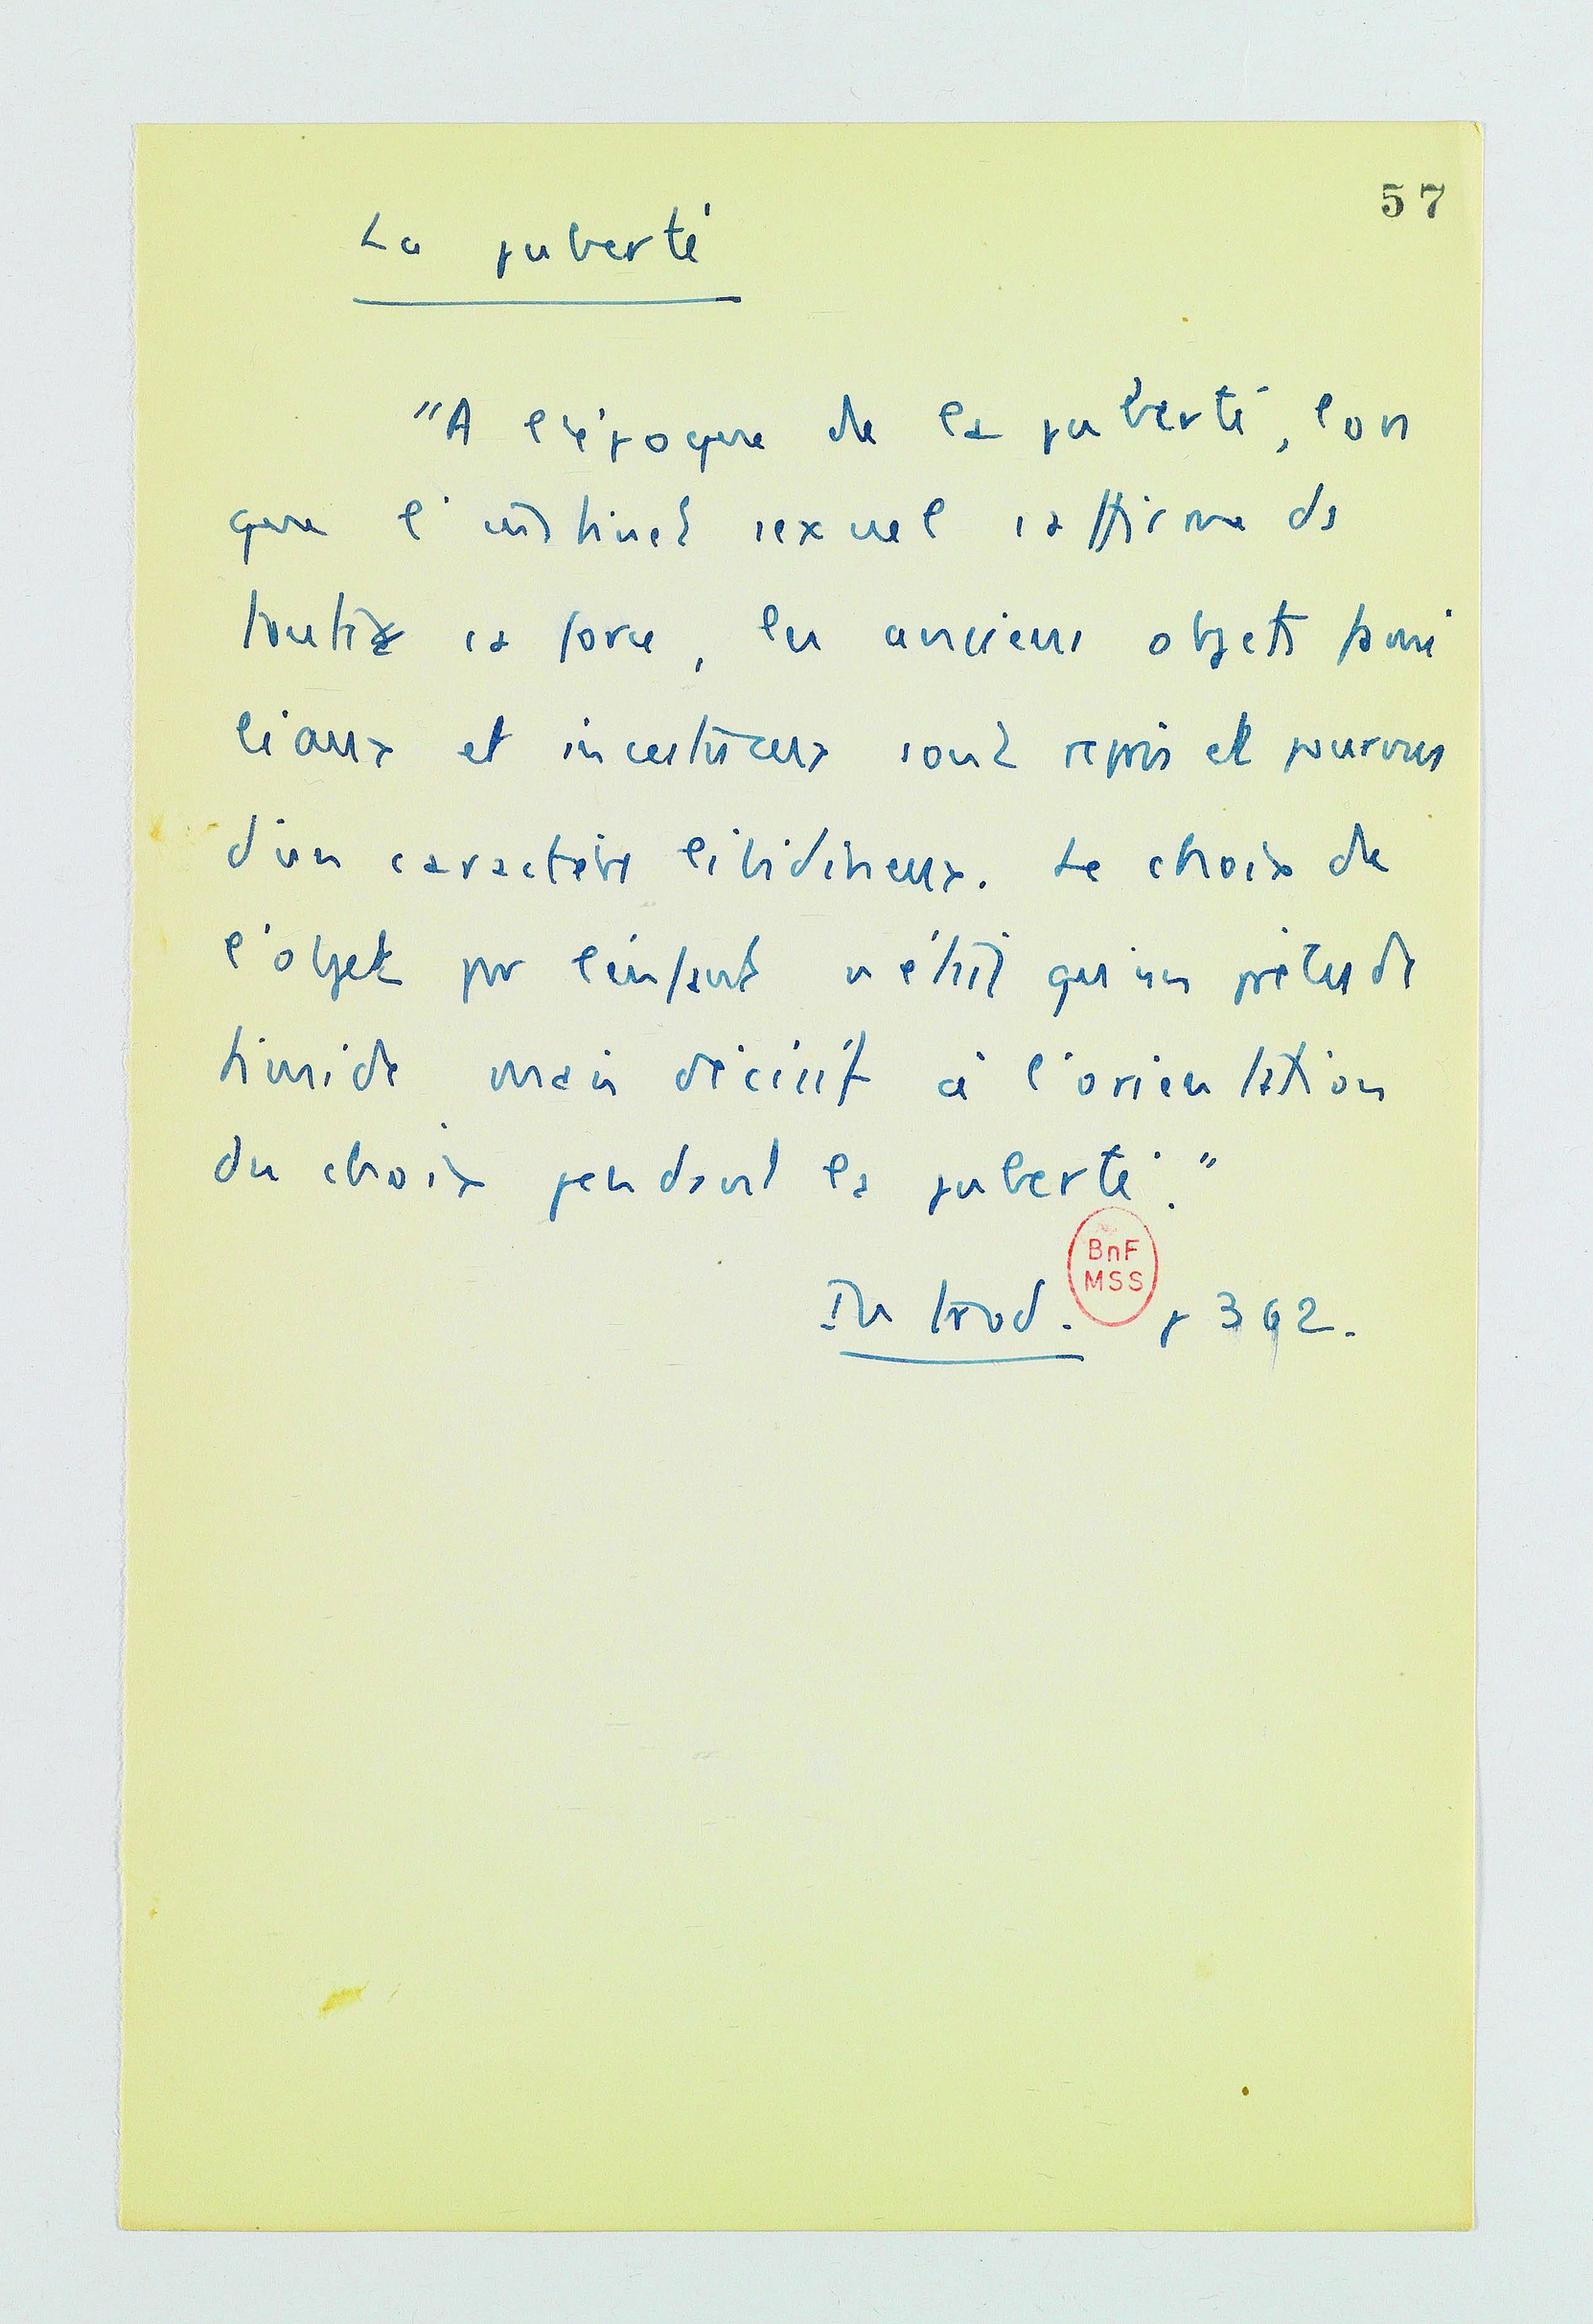 57
La puberté
"A l'époque de la puberté, lors
que l'instinct sexuel s'affirme de
toute sa force, les anciens objets fami
liaux et incestueux sont repris et pourvus
d'un caractère libidineux. Le choix de
l'objet par l'enfant n'était qu'un prélude
timide mais décisif à l'orientation
du choix pendant la puberté."
BnF
MSS
Introd. p 362.